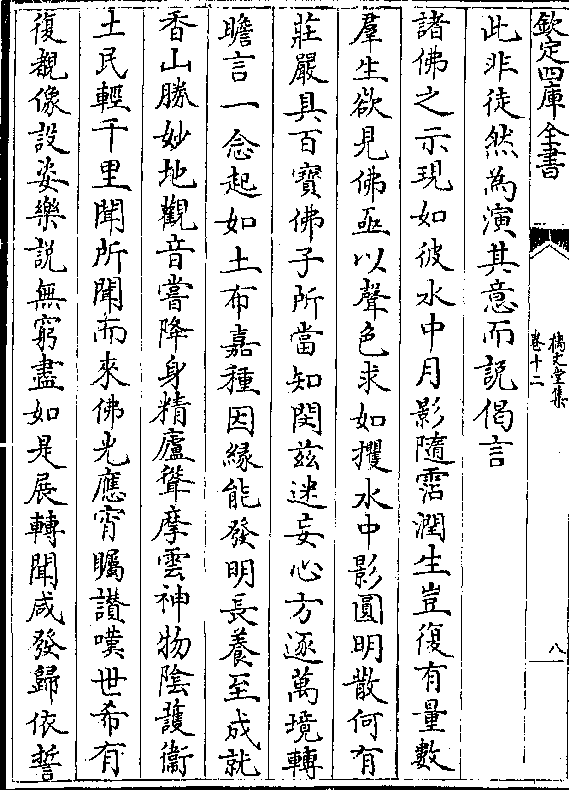 欽定四庫全書
摛文堂集
卷十二
八
此非徒然為演其意而説偈言
諸佛之示現如彼水中月影隨霑潤生豈復有量數
羣生欲見佛亟以聲色求如攫水中影圓明散何有
莊嚴具百寶佛子所當知閔兹迷妄心方逐萬境轉
瞻言一念起如土布嘉種因緣能發明長養至成就
香山勝妙地觀音嘗降身精廬聳摩雲神物陰護衞
土民輕千里聞所聞而來佛光應宵矚讃嘆世希有
復覩像設姿樂説無窮盡如是展轉聞咸發歸依誓